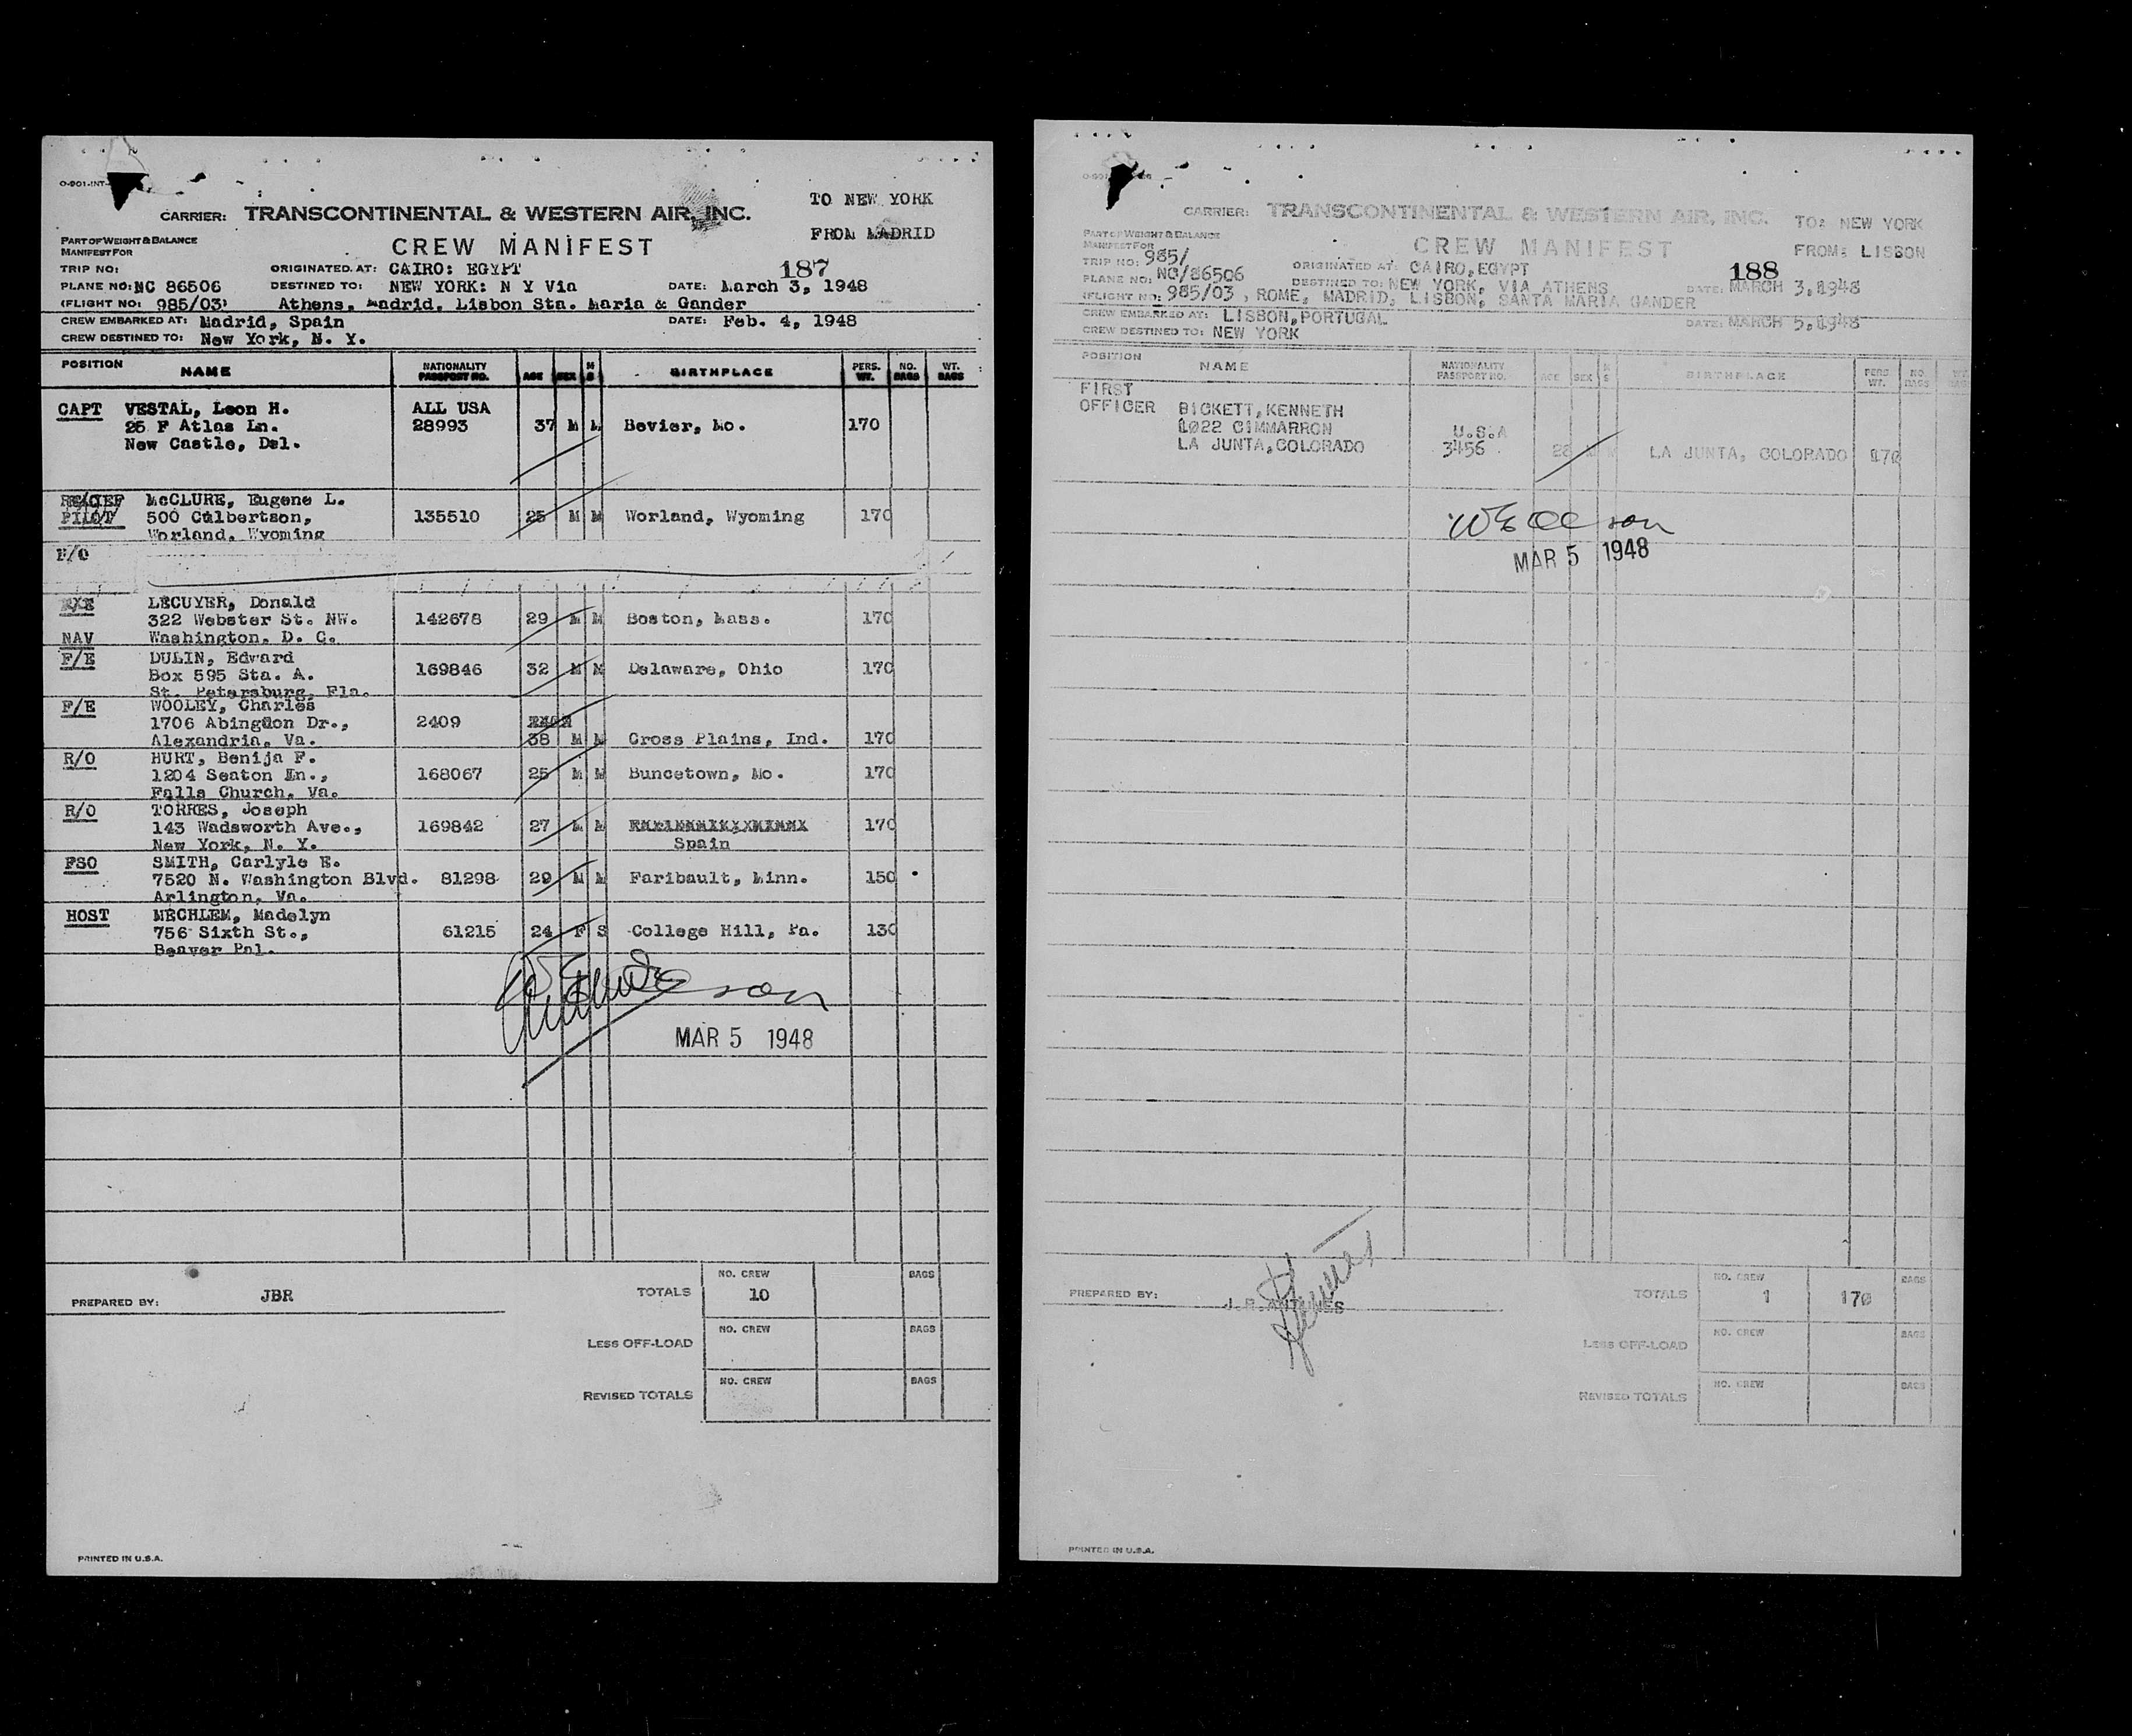 O-901-INT-
CARRIER: TRANSCONTINENTAL & WESTERN AIR, INC.
TO NEW YORK
FROM MADRID
PART OF WEIGHT & BALANCE
MANIFEST FOR
CREW MANIFEST
187
TRIP NO: ORIGINATED AT: CAIRO: EGYPT
PLANE NO: NC 86506 DESTINED TO: NEW YORK: N Y Via DATE: March 3, 1948
(FLIGHT NO: 985/03) Athens, Madrid, Lisbon Sta. Maria & Gander
CREW EMBARKED AT: Madrid, Spain DATE: Feb. 4, 1948
CREW DESTINED TO: New York, N. Y.
POSITION NAME NATIONALITY PASSPORT NO. AGE SEX M S BIRTHPLACE PERS. WT. NO. BAGS WT. BAGS
CAPT VESTAL, Leon H. ALL USA
25 F Atlas Ln. 28993 37 M M Bevier, Mo. 170
New Castle, Del.
RELIEF McCLURE, Eugene L.
PILOT 500 Culbertson, 135510 25 M M Worland, Wyoming 170
Worland, Wyoming
F/O
LECUYER, Donald
322 Webster St. NW. 142678 29 M M Boston, Mass. 170
NAV Washington, D. C.
F/E DULIN, Edward
Box 595 Sta. A. 169846 32 M M Delaware, Ohio 170
St. Petersburg, Fla.
F/E WOOLEY, Charles
1706 Abingdon Dr., 2409
Alexandria, Va. 38 M M Cross Plains, Ind. 170
R/O HURT, Benija F.
1204 Seaton Ln., 168067 25 M M Buncetown, Mo. 170
Falls Church, Va.
R/O TORRES, Joseph
143 Wadsworth Ave., 169842 27 M M 170
New York, N. Y. Spain
FSO SMITH, Carlyle E.
7520 N. Washington Blvd. 81298 29 M M Faribault, Minn. 150
Arlington, Va.
HOST MECHLEM, Madelyn
756 Sixth St., 61215 24 F S College Hill, Pa. 130
Beaver Pal.
MAR 5 1948
PREPARED BY: JBR TOTALS NO. CREW 10 BAGS
LESS OFF-LOAD NO. CREW BAGS
REVISED TOTALS NO. CREW BAGS
PRINTED IN U.S.A.
CARRIER: TRANSCONTINENTAL & WESTERN AIR, INC.
TO: NEW YORK
FROM: LISBON
PART OF WEIGHT & BALANCE
MANIFEST FOR
CREW MANIFEST
188
TRIP NO: 985/ ORIGINATED AT: CAIRO,EGYPT
PLANE NO: NC/86506 DESTINED TO: NEW YORK, VIA ATHENS DATE: MARCH 3,1948
(FLIGHT NO: 985/03 , ROME, MADRID, LISBON, SANTA MARIA GANDER
CREW EMBARKED AT: LISBON,PORTUGAL DATE: MARCH 5,1948
CREW DESTINED TO: NEW YORK
POSITION NAME NATIONALITY PASSPORT NO. AGE SEX M S BIRTHPLACE PERS WT. NO. BAGS WT. BAGS
FIRST
OFFICER BICKETT,KENNETH
1022 CIMMARRON U.S.A
LA JUNTA,COLORADO 3456 28 M M LA JUNTA, COLORADO 170
MAR 5 1948
PREPARED BY: J.R.ANTUNES TOTALS NO. CREW 1 170 BAGS
LESS OFF-LOAD NO. CREW BAGS
REVISED TOTALS NO. CREW BAGS
PRINTED IN U.S.A.